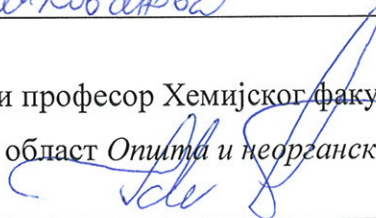 и професор Хемијског факу
област Општа и неорганск